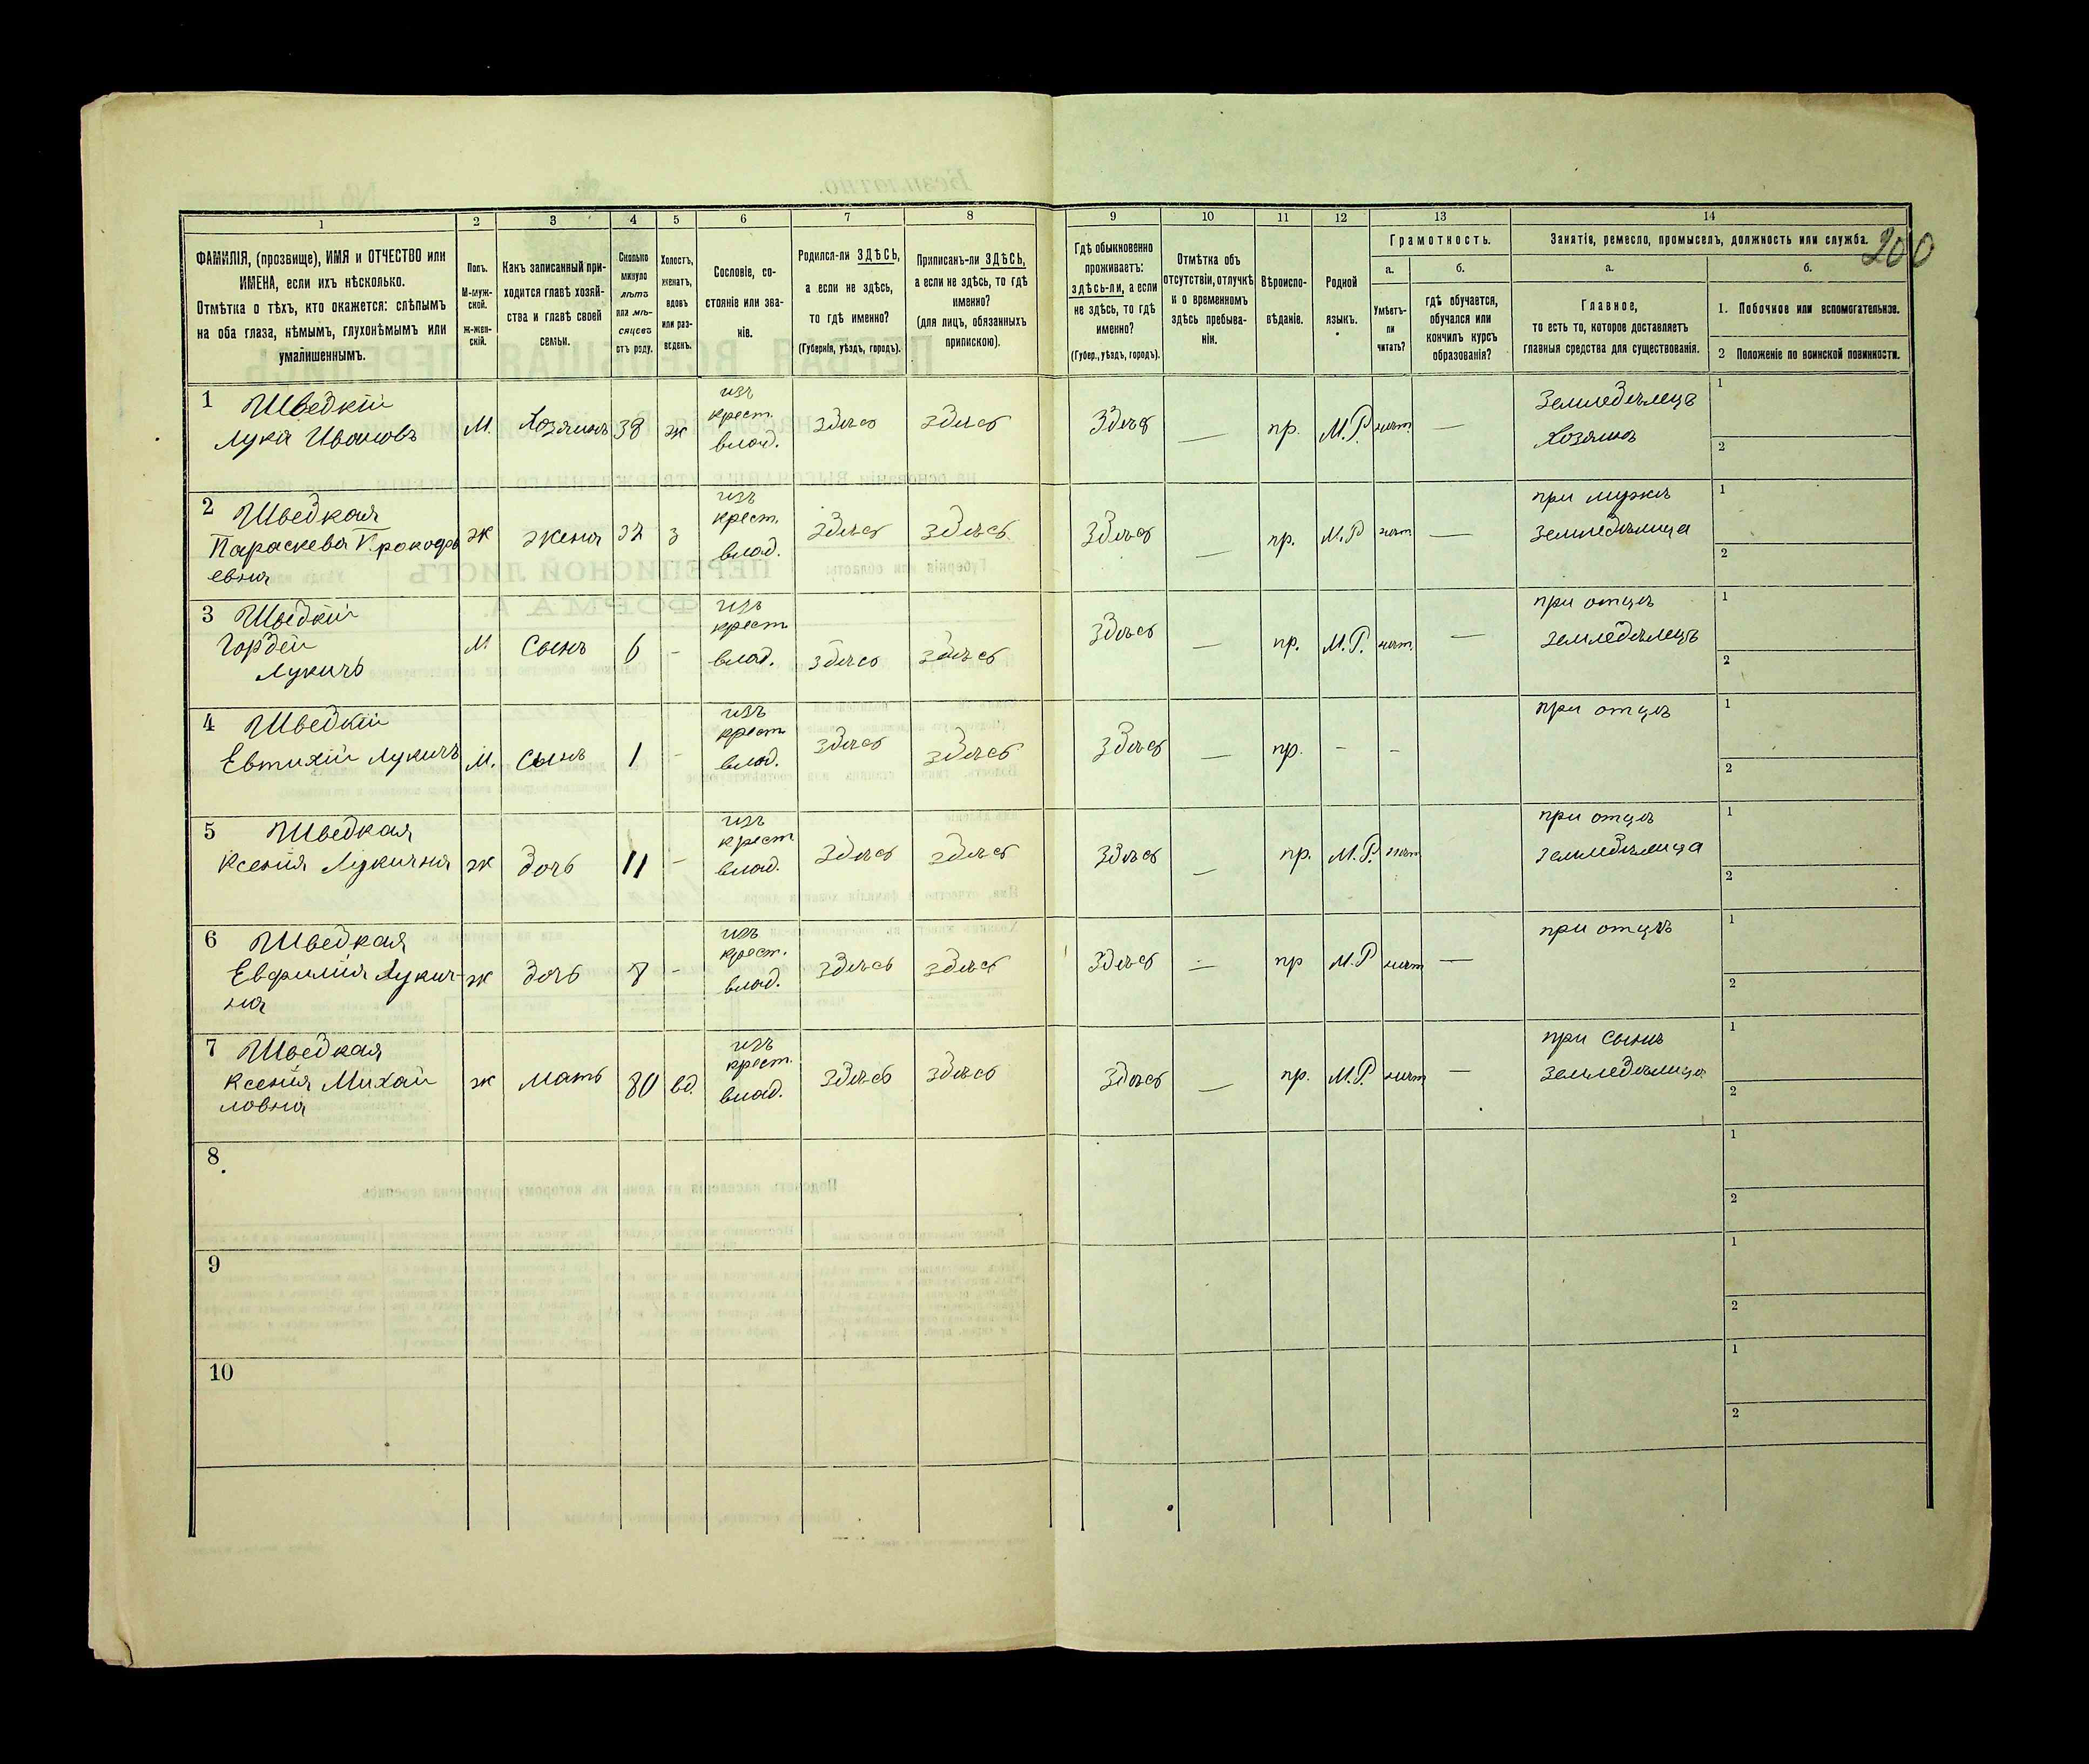 200
1 2 3 4 5 6 7 8 9 10 11 12 13 14
ФАМИЛІЯ, (прозвище), ИМЯ и ОТЧЕСТВО или
ИМЕНА, если ихъ нѣсколько.
Отмѣтка о тѣхъ, кто окажется: слѣпымъ
на оба глаза, нѣмымъ, глухонѣмымъ или
умалишеннымъ.
Полъ.
М-муж-
ской.
ж-жен-
скій.
Какъ записанный при-
ходится главѣ хозяй-
ства и главѣ своей
семьи.
Сколько
минуло
лѣтъ
или мѣ-
сяцевъ
отъ роду.
Холостъ,
женатъ,
вдовъ
или раз-
веденъ.
Сословіе, со-
стояніе или зва-
ніе.
Родился-ли ЗДѢСЬ,
а если не здѣсь,
то гдѣ именно?
(Губернія, уѣздъ, городъ).
Приписанъ-ли ЗДѢСЬ,
а если не здѣсь, то гдѣ
именно?
(для лицъ, обязанныхъ
припискою).
Гдѣ обыкновенно
проживаетъ:
здѣсь-ли, а если
не здѣсь, то гдѣ
именно?
(Губер., уѣздъ, городъ).
Отмѣтка объ
отсутствіи, отлучкѣ
и о временномъ
здѣсь пребыва-
ніи.
Вѣроиспо-
вѣданіе.
Родной
языкъ.
Грамотность.
а.
Умѣетъ-
ли
читать?
б.
гдѣ обучается,
обучался или
кончилъ курсъ
образованія?
Занятія, ремесло, промыселъ, должность или служба.
а.
Главное,
то есть то, которое доставляетъ
главныя средства для существованія.
б.
1. Побочное или вспомогательное.
2 Положеніе по воинской повинности.
1 Шведкій изъ Земледѣлецъ 1
Лука Ивановъ М. Хозяинъ 38 ж крест. здѣсь здѣсь Здѣсь — пр. М.Р. нѣт. — Хозяинъ
влад. 2
2 Шведкая изъ при мужѣ 1
Параскева Прокофь ж жена 32 з крест. здѣсь здѣсь здѣсь — пр. М.Р нѣт — земледѣлица
евна влад. 2
3 Шведкій изъ при отцѣ 1
Гордѣй М сынъ 6 - крест здѣсь здѣсь здѣсь — пр. М.Р. нѣт. — земледѣлецъ
Лукичъ влад. 2
4 Шведкій изъ при отцѣ 1
Евтихій Лукичъ М. сынъ 1 - крест здѣсь здѣсь здѣсь — пр. - -
влад. 2
5 Шведкая изъ при отцѣ 1
Ксенія Лукична ж дочь 11 - крест здѣсь здѣсь здѣсь — пр. М.Р. нѣт земледѣлица
влад. 2
6 Шведкая изъ при отцѣ 1
Евфимія Лукич- ж дочь 8 - крест. здѣсь здѣсь здѣсь — пр М.Р нѣт —
на влад. 2
7 Шведкая изъ при сынѣ 1
Ксенія Михай ж мать 80 вд. крест. здѣсь здѣсь здѣсь — пр. М.Р. нѣт — земледѣлица
ловна влад. 2
8 1
2
9 1
2
10 1
2